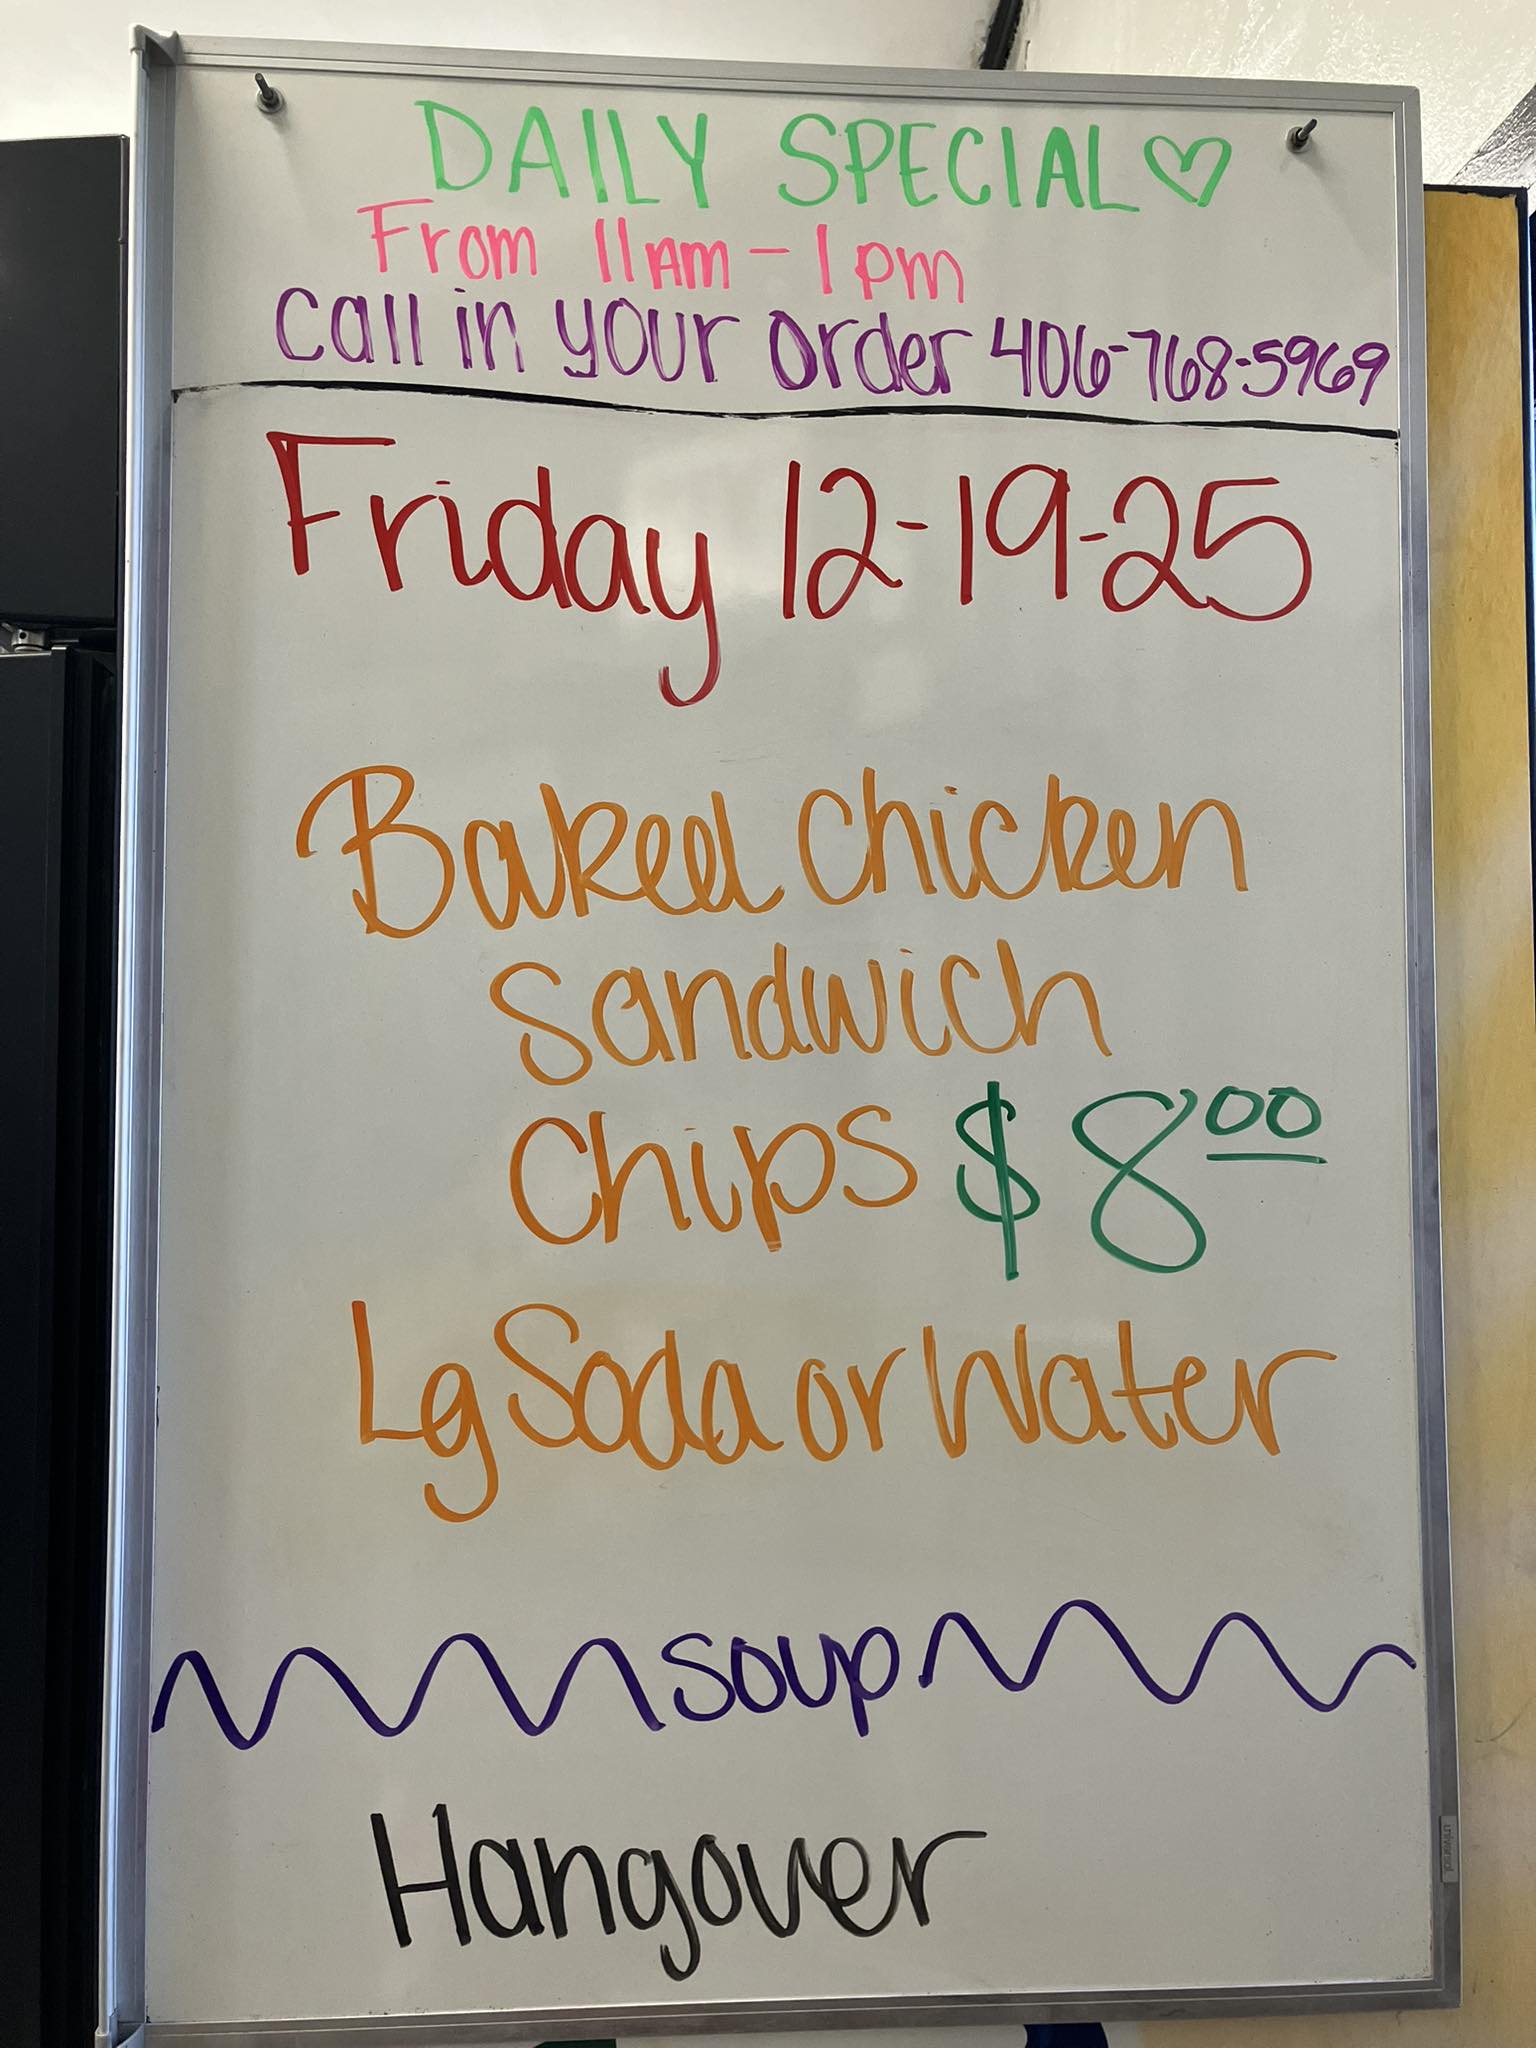 DAILY SPECIAL ♡
From 11am - 1pm
call in your order 406-768-5969
Friday 12-19-25
Baked chicken
sandwich
Chips $8.00
Lg Soda or Water
soup
Hangover
universal